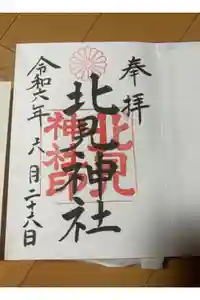 奉拝
北見神社
北見神社印
令和六年六月二十六日